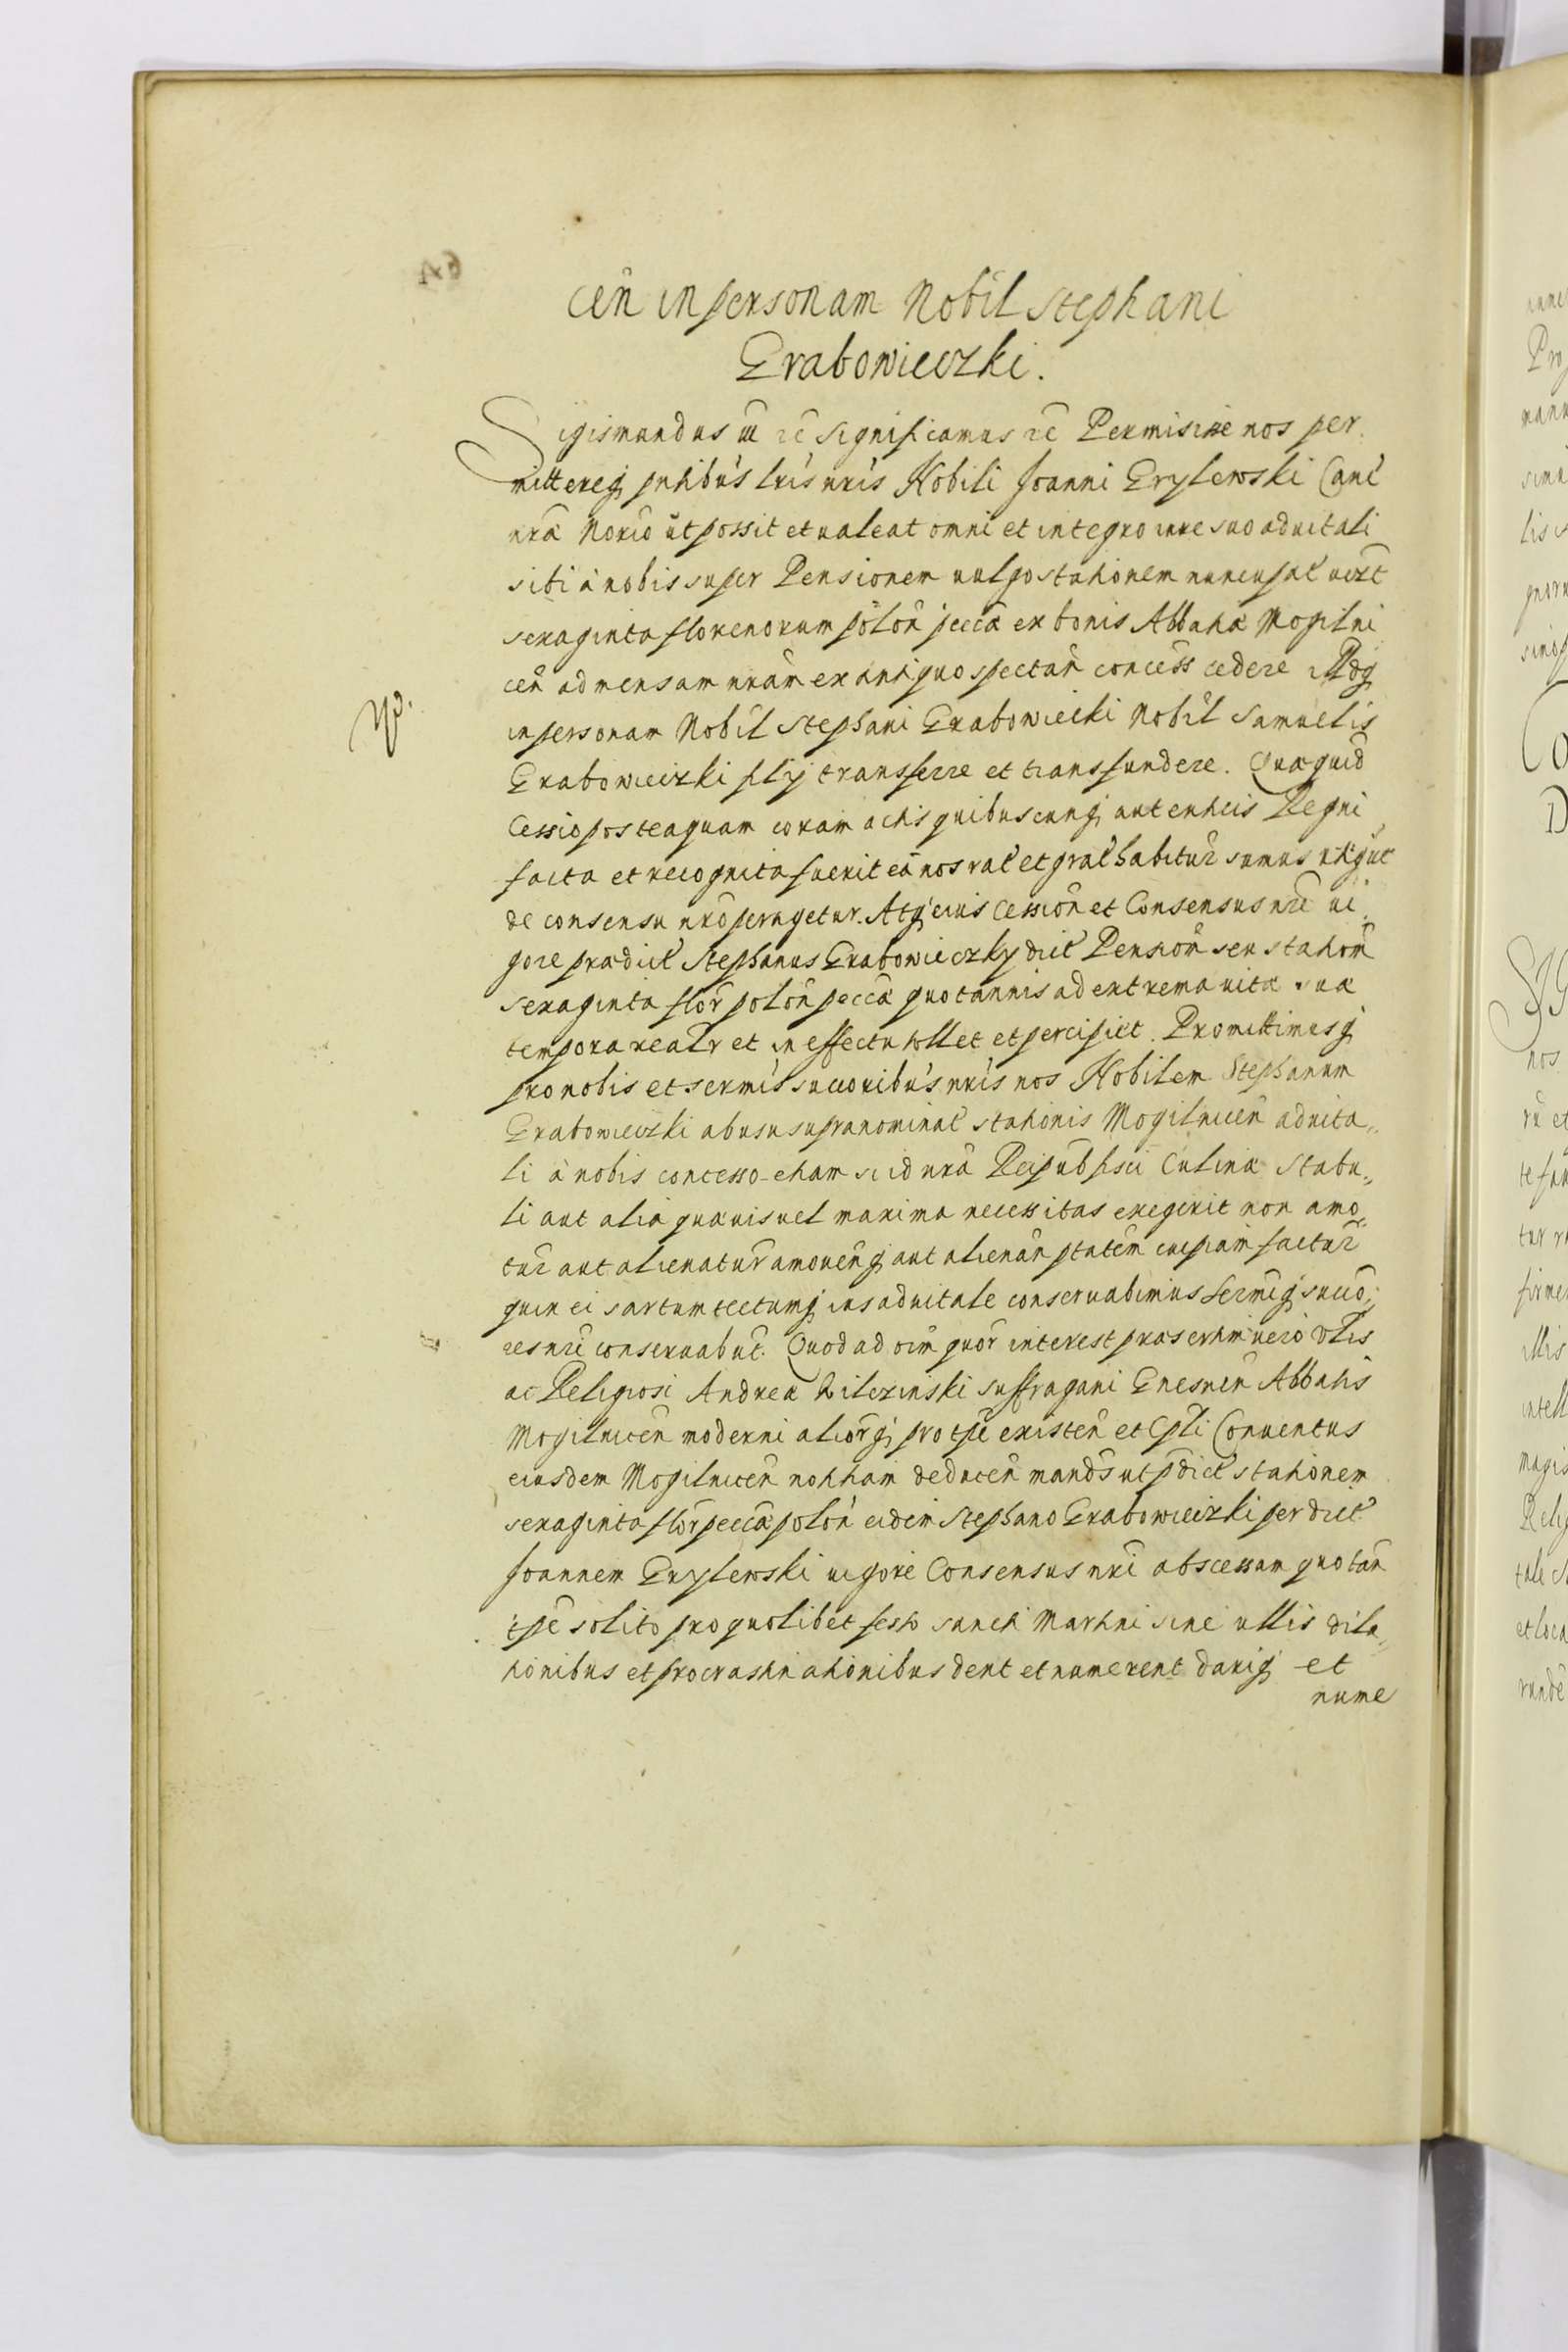 cen̄ in personam Nobil Stephani
Grabowieczki.
Sigismundus III etc̄ Significamus etc̄ Permisisse nos per
mittereq́ pn̄tibús lr̄is nr̄is Nobili Joanni Grylewski Canc̄
nr̄a Norio ut possit et ualeat omni et integro iure suo aduitali
sibi à nobis super Pensionem uulgo stationem nuncupat̄ uizt
sexaginta florenorum polon̄ pecca ex bonis Abbatiæ Mogilni
cen̄ ad mensam nram̄ ex antiquo spectan̄ concess cedere illudq́
in personam Nobil Stephani Grabowiecki Nobil Samuelis
Grabowieczki filij transferre et transfundere. Quæ quid
Cessio posteaquam coram actis quibuscunq́ autenticis Regni
facta et recognita fuerit eā nos rat̄ et grat̄ habitur̄ sumus utiq́ ut
de consensu nr̄o peragetur. Atq́ eius Cession̄ et Consensus nr̄i ui
gore prædict̄ Stephanus Grabowieczky dict̄ Pension̄ seu station̄
sexaginta flor̄ polon̄ pecca quotannis ad extrema uitæ suæ
tempora realr̄ et in effectu tollet et percipiet. Promittimusq́
pro nobis et sermīs succoribús nr̄is nos Nobilem Stephanum
Grabowieczki ab usu supranominat̄ stationis Mogilnicen̄ aduita„
li à nobis concesso etiam si id nr̄a Reipub fisci Culinæ Stabu„
li aut alia quæuis uel maxima necessitas exegerit non amo„
tur̄ aut alienatur̄ amouen̄q́ aut alienan̄ ptatem̄ cuipiam̄ factur̄
quin ei sartum tectumq́ ius aduitale conseruabimus Sermīq́ succo„
res nr̄i conseruabut̄. Quod ad oīm quor̄ interest præsertim uero Vlis
ac Religiosi Andreæ suffragani Gnesnen̄ Abbatis
Mogilnicen̄ moderni aliorq́ pro tpē existen̄ et Cpli Conuentus
eiusdem Mogilnicen̄ notitiam deducen̄ mandś ut pdict̄ stationem
sexaginta flor̄ pecca polon̄ eidem Stephano Grabowieczki per dict̄
Joannem Grylewski uigore Consensus nr̄i abscessam quotan̄
tpē solito pro quolibet festo Sancti Martini sine ullis dila„
tionibus et procrastinationibus dent et numerent dariq́ et
nume